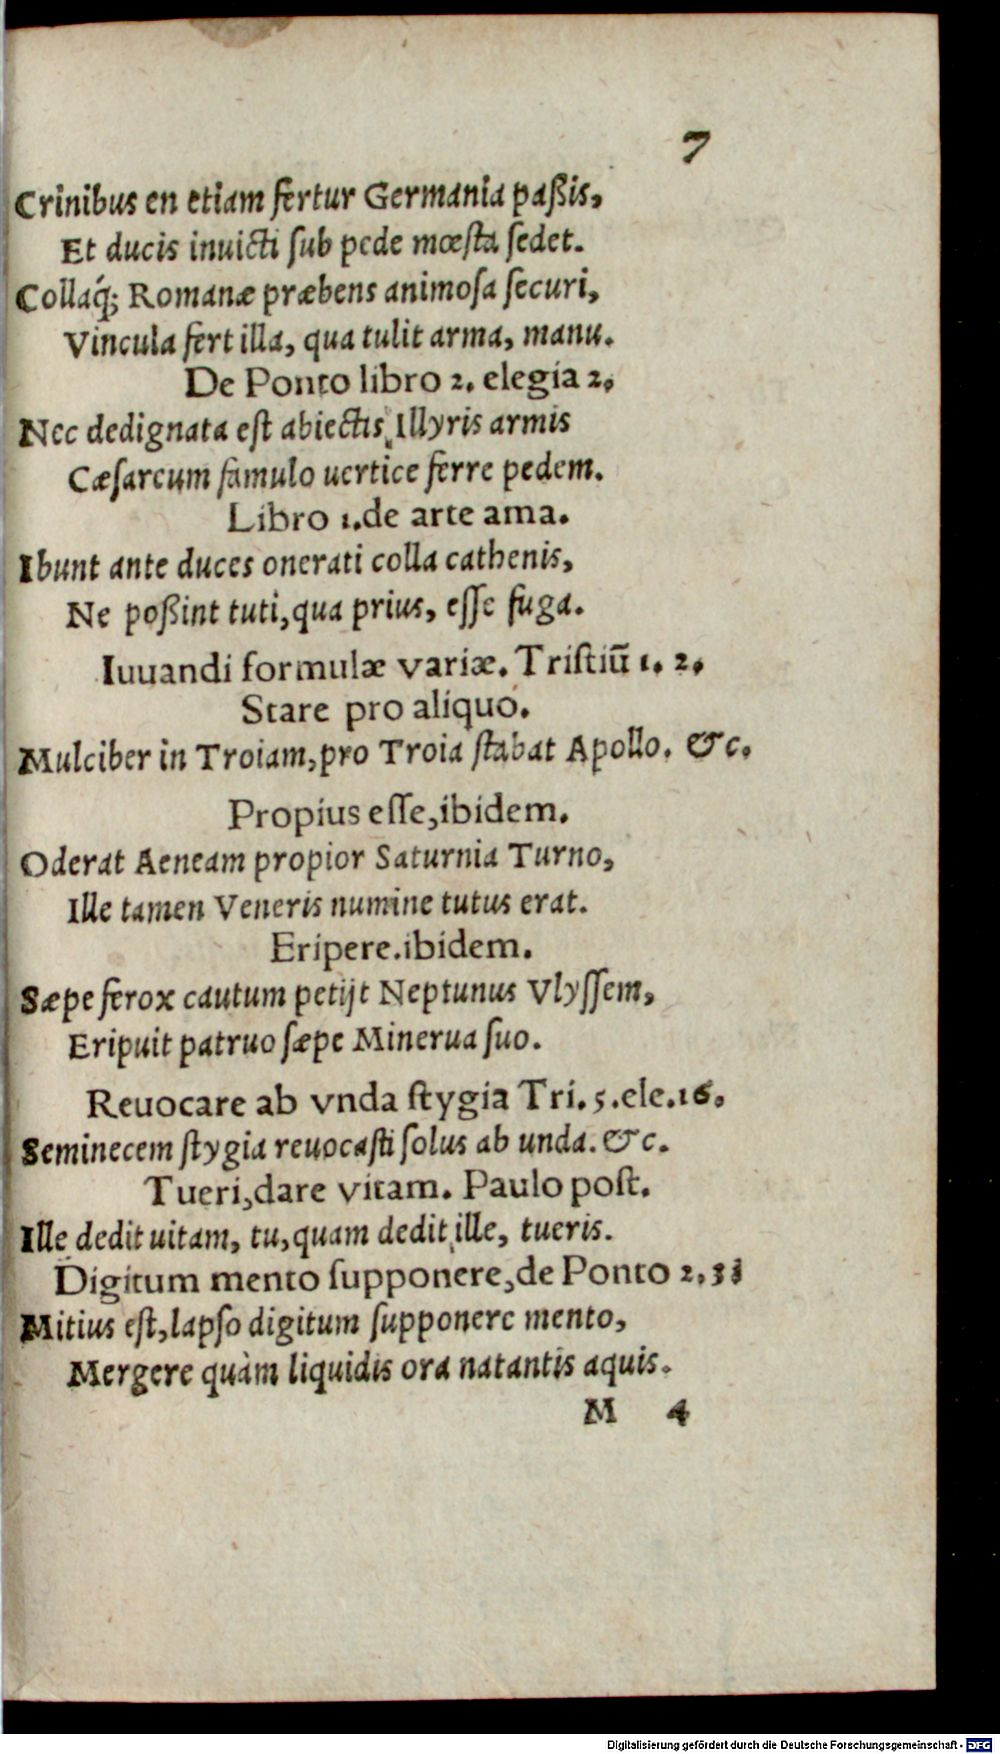 7
Crinibus en etiam fertur Germania paßis,
Et ducis inuicti sub pede mœsta sedet.
Collaq́; Romanæ præbens animosa securi,
Vincula fert illa, qua tulit arma, manu.
De Ponto libro 2. elegia 2.
Nec dedignata est abiectis Illyris armis
Cæsareum famulo uertice ferre pedem.
Libro 1. de arte ama.
Ibunt ante duces onerati colla cathenis,
Ne poßint tuti, qua prius, esse fuga.
Iuuandi formulæ variæ. Tristiū 1. 2.
Stare pro aliquo.
Mulciber in Troiam, pro Troia stabat Apollo. &c.
Propius esse, ibidem.
Oderat Aeneam propior Saturnia Turno,
Ille tamen Veneris numine tutus erat.
Eripere. ibidem.
Sæpe ferox cautum petijt Neptunus Vlyssem,
Eripuit patruo sæpe Minerua suo.
Reuocare ab vnda stygia Tri. 5. ele. 16.
Seminecem stygia reuocasti solus ab unda. &c.
Tueri, dare vitam. Paulo post.
Ille dedit uitam, tu, quam dedit ille, tueris.
Digitum mento supponere, de Ponto 2. 3
Mitius est, lapso digitum supponere mento,
Mergere quàm liquidis ora natantis aquis.
M 4
Digitalisierung gefördert durch die Deutsche Forschungsgemeinschaft - DFG